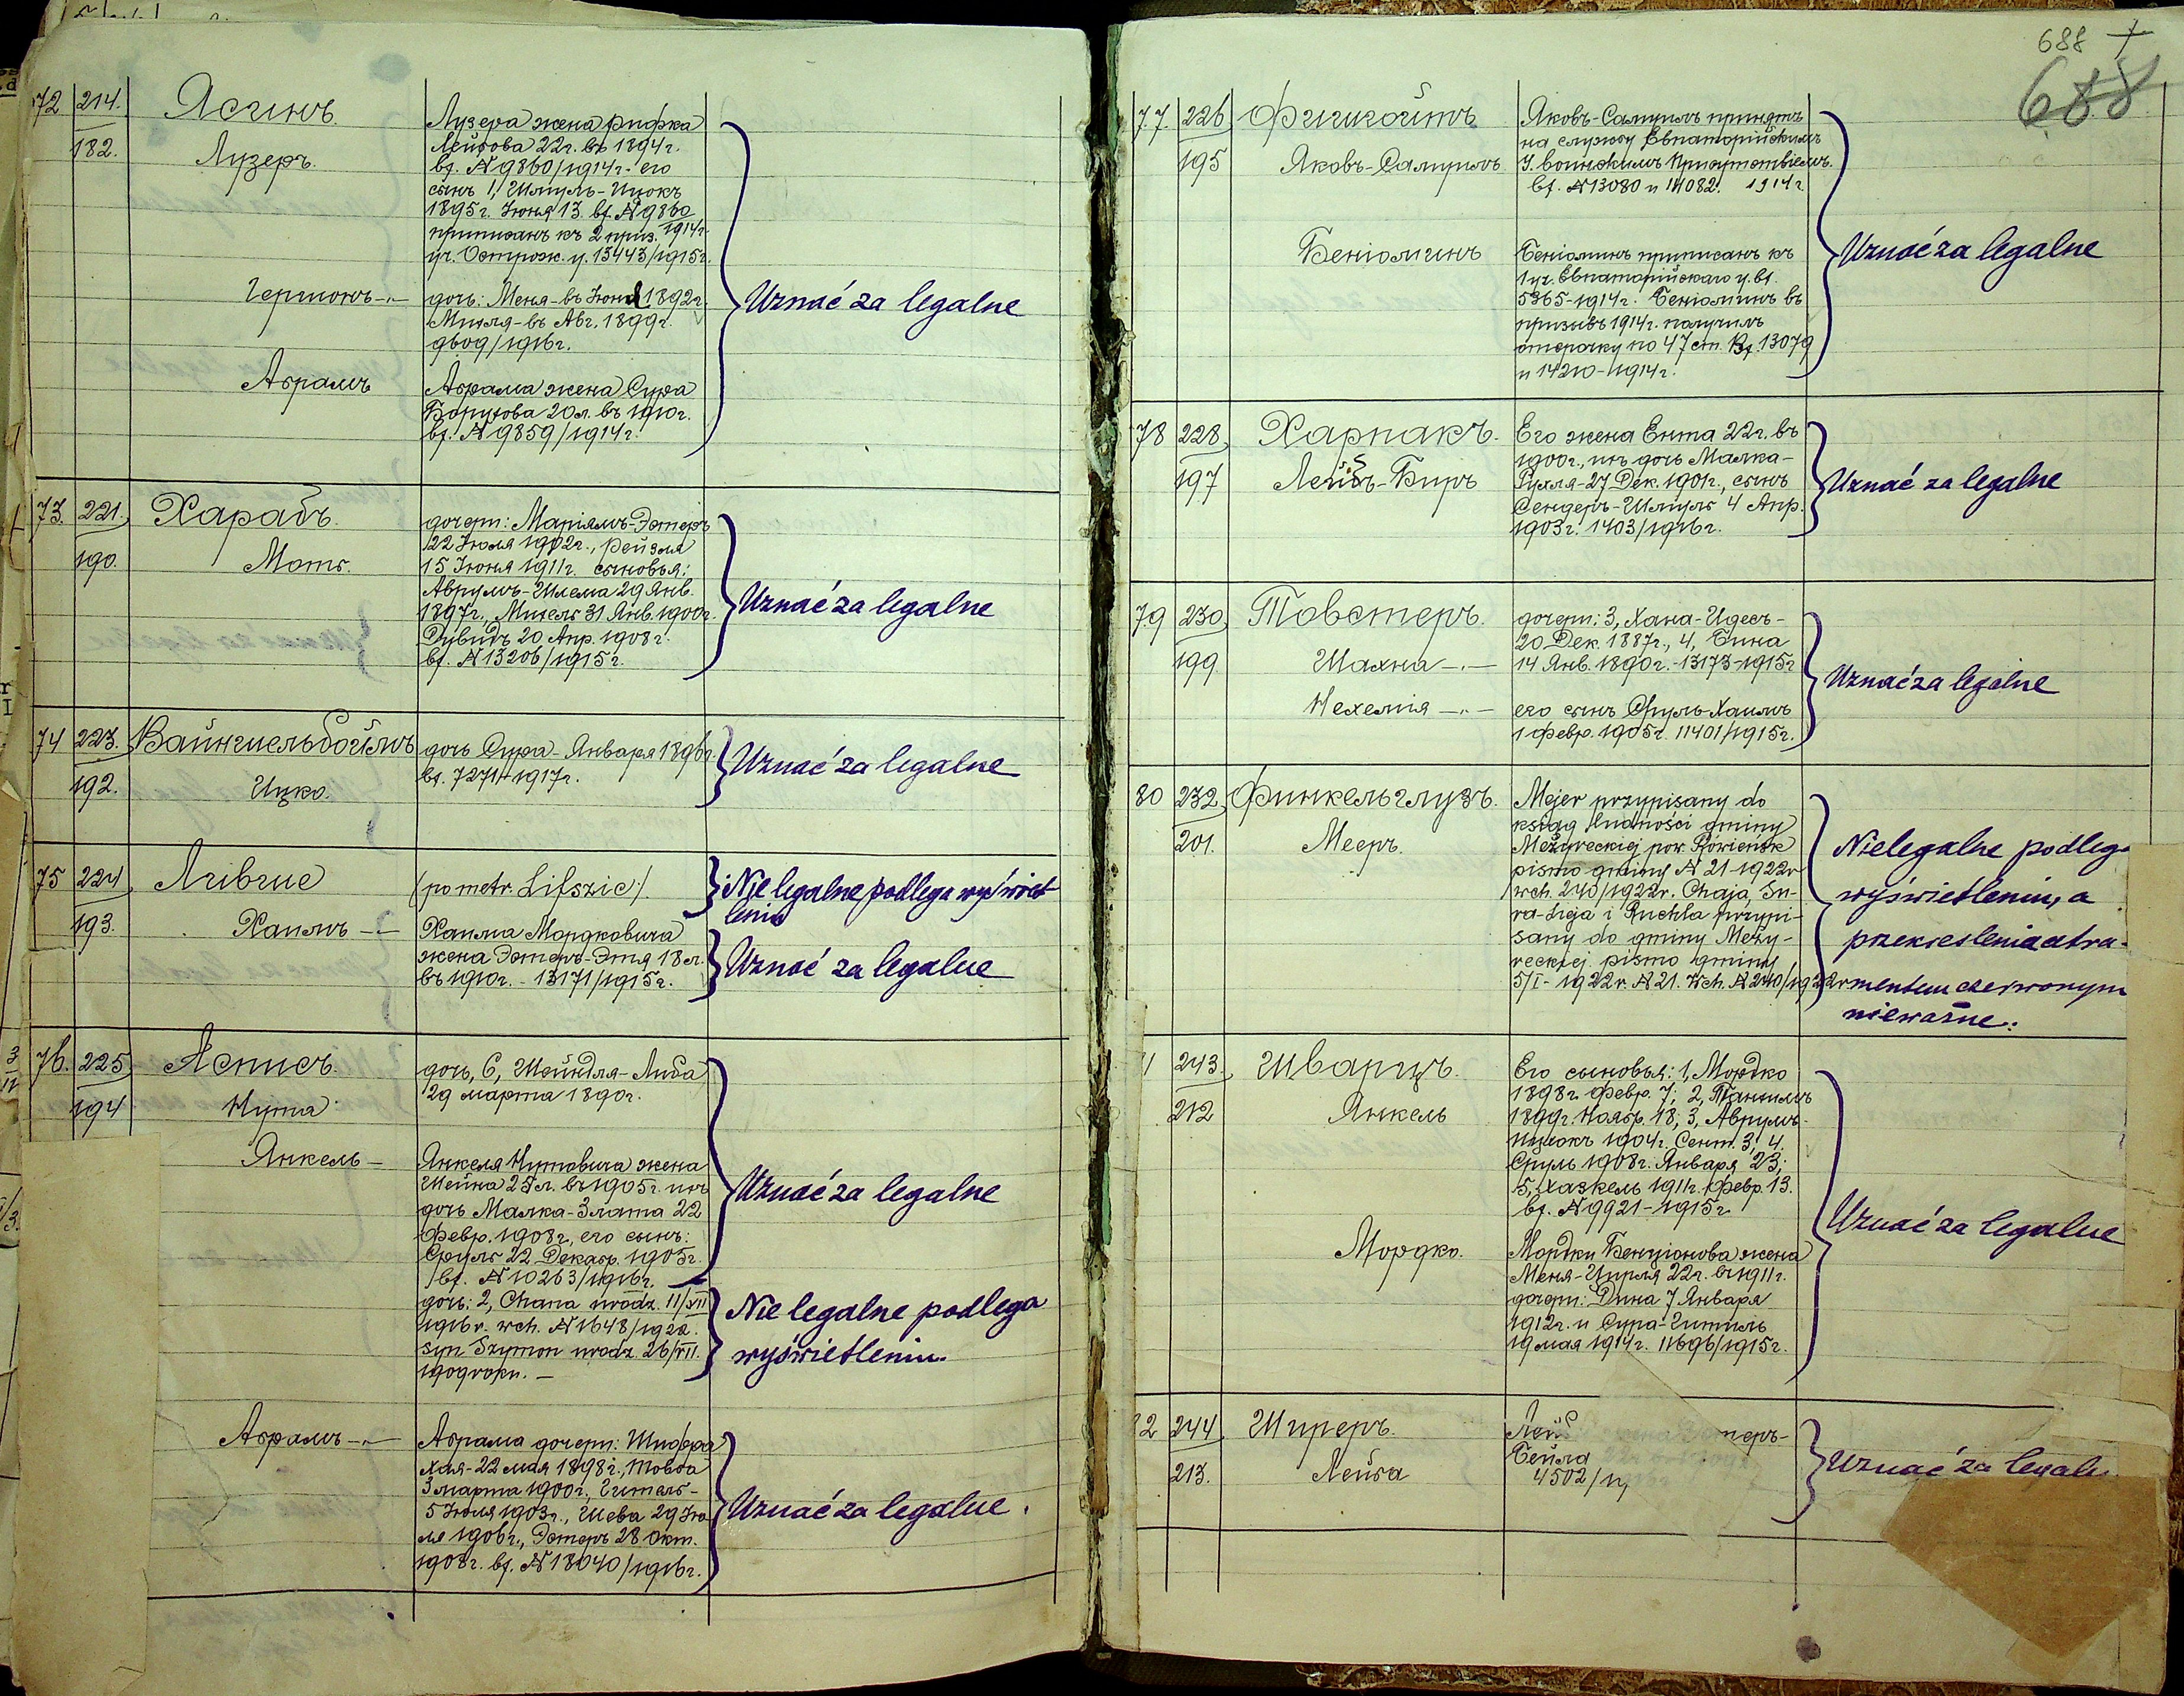 72 214. Ясчинъ. Лузера жена Рифка
182. Лузеръ. Лейбова 22г. въ 1894г.
вх. № 9860/1914г. его
сынъ 1, Шмуль-Ицокъ
1895г. Іюня 13. вх. № 9860
1914г.
приписанъ къ 2 приз.
уч. Острож. у. 13443/1915г.
Гершонъ -"- дочь: Меня - въ Іюнѣ 1892г.
Uznać za legalne
въ Авг. 1899г.
9609/1916г.
Абрамъ Абрама жена Сура
Борухова 20л. въ 1910г.
вх. № 9859/1914г.
73. 221. Харабъ. дочери: Маріямъ-Эстеръ
22 Іюля 1902г., Рейзля
190. 15 Іюня 1911г. сыновья:
Аврумъ-Шлема 29 Янв.
1897г., 31 Янв. 1900г.
Uznać za legalne
Дувидъ 20 Апр. 1908г.
вх. № 13206/1915г.
74 223. дочь Сура - Января 1896г.
вх. 7271-1917г.
Uznać za legalne
192. Ицко.
75 224 (po metr. Lifszic). Nielegalne podlega wyświet-
leniu
193. Хаимъ -"- Хаима Мордковича
жена Эстеръ-Этя 18 л.
въ 1910г. - 13171/1915г.
Uznać za legalne
76. 225 Асписъ. дочь, 6, Шейндля-Либа
29 марта 1890г.
194 Нута
Янкель - Янкеля Нутовича жена
Шейна 25л. въ 1905г. ихъ
Uznać za legalne
дочь Малка-Злата 22
Февр. 1908г., его сынъ:
Сруль 22 Декабр. 1905г.
вх. № 10263/1916г.
дочь: 2, Chana urodz. 11/VII
Nie legalne podlega
1916r. wch. № 1648/1922.
syn Szymon urodz. 26/VII.
wyświetleniu.
1909 roku. -
Абрамъ -"- Абрама дочери: Шифра
Хая - 22 мая 1898г., Товба
3 марта 1900г., Гитель -
5 Іюля 1903г., Шева 29 Ію-
Uznać za legalne.
ля 1906г., Эстеръ 28 Окт.
1908г. вх. № 18040/1916г.
688
688
77. 226 Яковъ-Самуилъ принятъ
на службу Евпаторійскимъ
195 Яковъ-Самуилъ У. воинскимъ Присутствіемъ.
вх. № 13080 и 14082. 1914г
Беніоминъ Беніоминъ приписанъ къ
Uznać za legalne
1 уч. Евпаторійскаго у. вх.
5365-1914г. Беніоминъ въ
призывъ 1914г. получилъ
отсрочку по 47 ст. Вх. 13079
и 14210-1914г.
78 228 Харпакъ. Его жена Ента 22г. въ
1900г., ихъ дочь Малка-
197 Лейбъ-Беръ Рухля - 27 Дек. 1901г., сынъ
Uznać za legalne
Сендеръ-Шмуль 4 Апр.
1903г. 1403/1916г.
79 230 Товстеръ. дочери: 3, Хана-Идесъ -
20 Дек. 1887г., 4, Бина
199 Шахна -"- 14 Янв. 1890г. - 13173-1915г
Uznać za legalne
Нехемія -"- его сынъ Сруль-Хаимъ
1 Февр. 1905г. 11401/1915г.
80 232 Финкельглузъ. Mejer przypisany do
ksiąg ludności gminy
201. Мееръ. Meżyreckiej pow. Rówieńsk
Nielegalne podlega
pismo gminy № 21-1922r
wch. 240/1922r. Chaja, Su-
wyświetleniu, a
ra-Łeja i Ruchla przypi-
sany do gminy Meży-
przekreślenia atra-
reckiej. pismo gminy
5/I - 1922r. № 21. Wch. № 240/1922r
mentem czerwonym
nieważne.
243. Шварцъ. Его сыновья: 1, Мордко
1898г. Февр. 7; 2,
212 Янкель 1899г. Ноябр. 18; 3, Аврумъ-
Ицхокъ 1904г. Сент. 3, 4,
Сруль 1908г. Января 23;
5, Хаскель 1911г. Февр. 13.
вх. № 9921-1915г
Uznać za legalne
Мордко. Мордки Бенціонова жена
Меня-Цирля 22г. въ 1911г.
дочери: Дина 7 Января
1912г. и Сура-Гитель
19 мая 1914г. 11696/1915г.
244 Ширеръ. Лей
Бейла
213. Лейба 4502/
Uznać za legaln